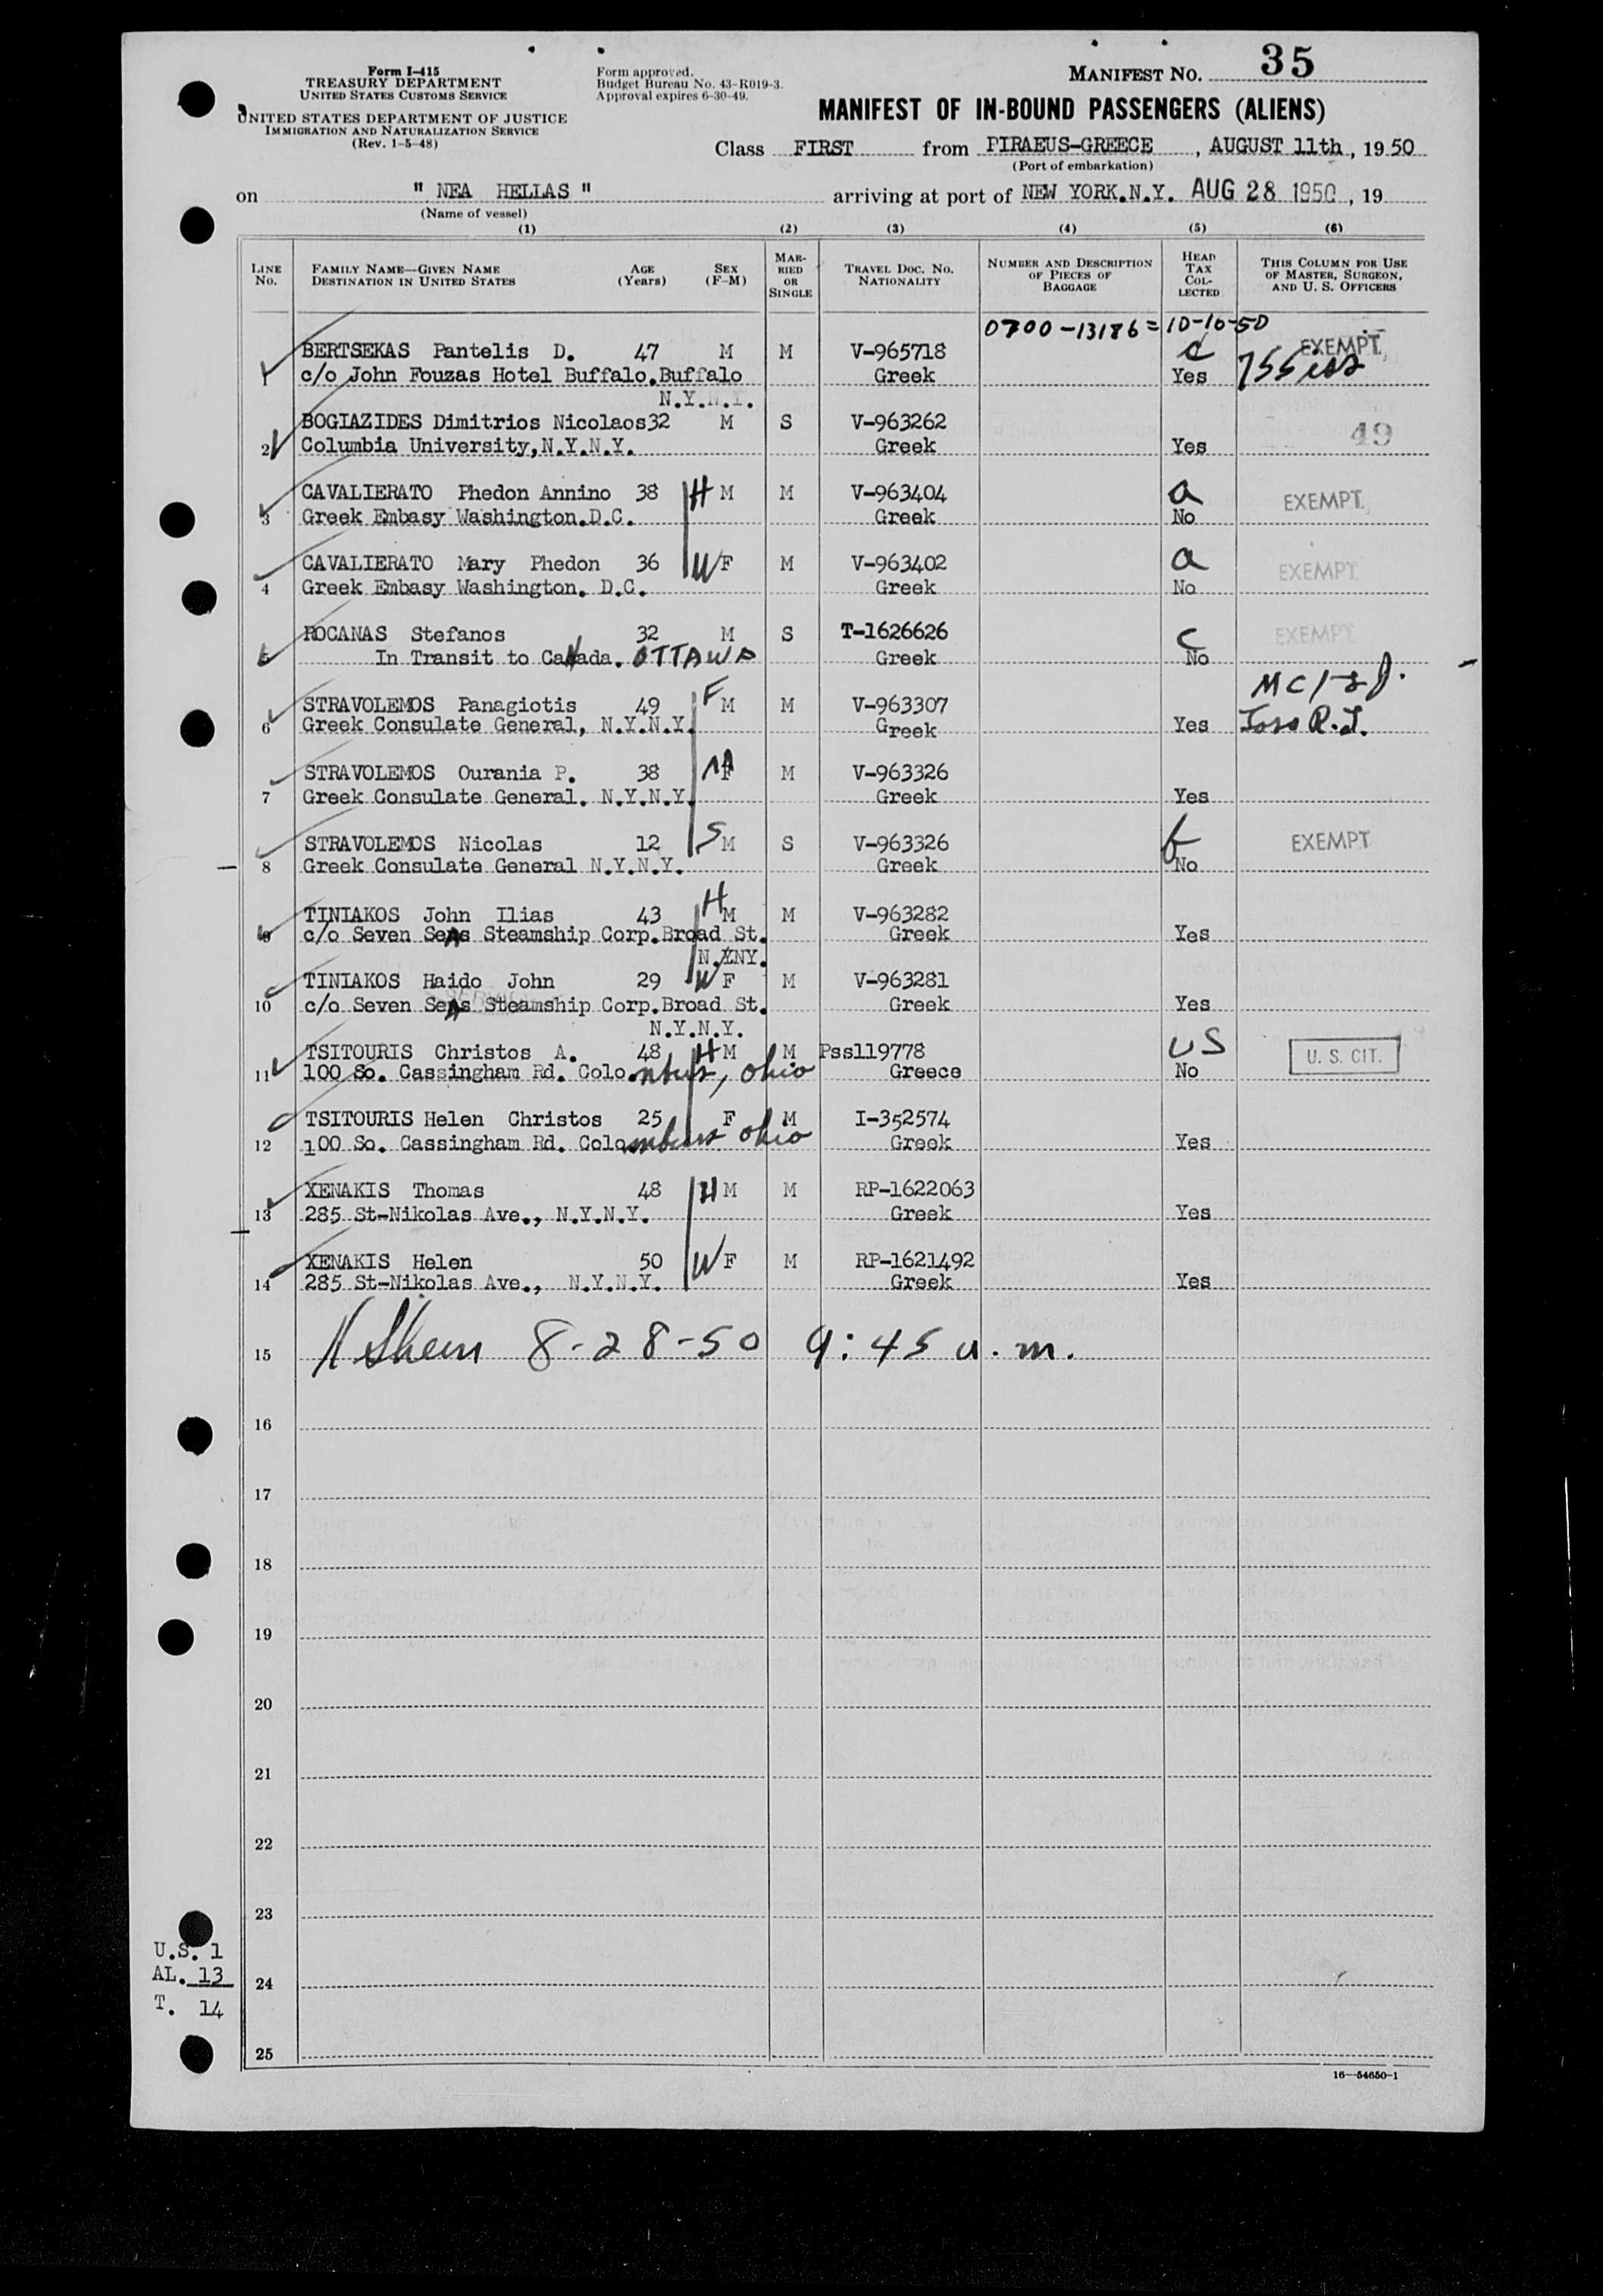 Form I-415
TREASURY DEPARTMENT
UNITED STATES CUSTOMS SERVICE
UNITED STATES DEPARTMENT OF JUSTICE
IMMIGRATION AND NATURALIZATION SERVICE
(Rev. 1-5-48)
Form approved.
Budget Bureau No. 43-R019-3.
Approval expires 6-30-49.
MANIFEST NO. 35
MANIFEST OF IN-BOUND PASSENGERS (ALIENS)
Class FIRST from PIRAEUS-GREECE, AUGUST 11th, 1950
(Port of embarkation)
on " NEA HELLAS " arriving at port of NEW YORK.N.Y. AUG 28 1950, 19
(Name of vessel)
(1) (2) (3) (4) (5) (6)
LINE NO. FAMILY NAME—GIVEN NAME DESTINATION IN UNITED STATES AGE (Years) SEX (F-M) MARRIED OR SINGLE TRAVEL DOC. NO. NATIONALITY NUMBER AND DESCRIPTION OF PIECES OF BAGGAGE HEAD TAX COLLECTED THIS COLUMN FOR USE OF MASTER, SURGEON, AND U. S. OFFICERS
0700-13186=10-10-50
BERTSEKAS Pantelis D. 47 M M V-965718 c EXEMPT
1 c/o John Fouzas Hotel Buffalo.Buffalo Greek Yes
N.Y.N.Y.
BOGIAZIDES Dimitrios Nicolaos32 M S V-963262 49
2 Columbia University,N.Y.N.Y. Greek Yes
CAVALIERATO Phedon Annino 38 H M M V-963404 a EXEMPT
3 Greek Embasy Washington.D.C. Greek No
CAVALIERATO Mary Phedon 36 W F M V-963402 a EXEMPT
4 Greek Embasy Washington. D.C. Greek No
ROCANAS Stefanos 32 M S T-1626626 c EXEMPT
5 In Transit to Canada. OTTAWA Greek No
STRAVOLEMOS Panagiotis 49 F M M V-963307
6 Greek Consulate General, N.Y.N.Y. Greek Yes
STRAVOLEMOS Ourania P. 38 M F M V-963326
7 Greek Consulate General. N.Y.N.Y. Greek Yes
STRAVOLEMOS Nicolas 12 S M S V-963326 b EXEMPT
8 Greek Consulate General N.Y.N.Y. Greek No
TINIAKOS John Ilias 43 H M M V-963282
9 c/o Seven Seas Steamship Corp.Broad St. Greek Yes
N.Y.NY.
TINIAKOS Haido John 29 W F M V-963281
10 c/o Seven Seas Steamship Corp.Broad St. Greek Yes
N.Y.N.Y.
TSITOURIS Christos A. 48 H M M Pss119778 US U. S. CIT.
11 100 So. Cassingham Rd. Colombus, Ohio Greece No
TSITOURIS Helen Christos 25 F M I-352574
12 100 So. Cassingham Rd. Colombus Ohio Greek Yes
XENAKIS Thomas 48 H M M RP-1622063
13 285 St-Nikolas Ave., N.Y.N.Y. Greek Yes
XENAKIS Helen 50 W F M RP-1621492
14 285 St-Nikolas Ave., N.Y.N.Y. Greek Yes
15 8-28-50 9:45 a.m.
16
17
18
19
20
21
22
23
U.S. 1
AL. 13 24
T. 14
25
16—54650-1